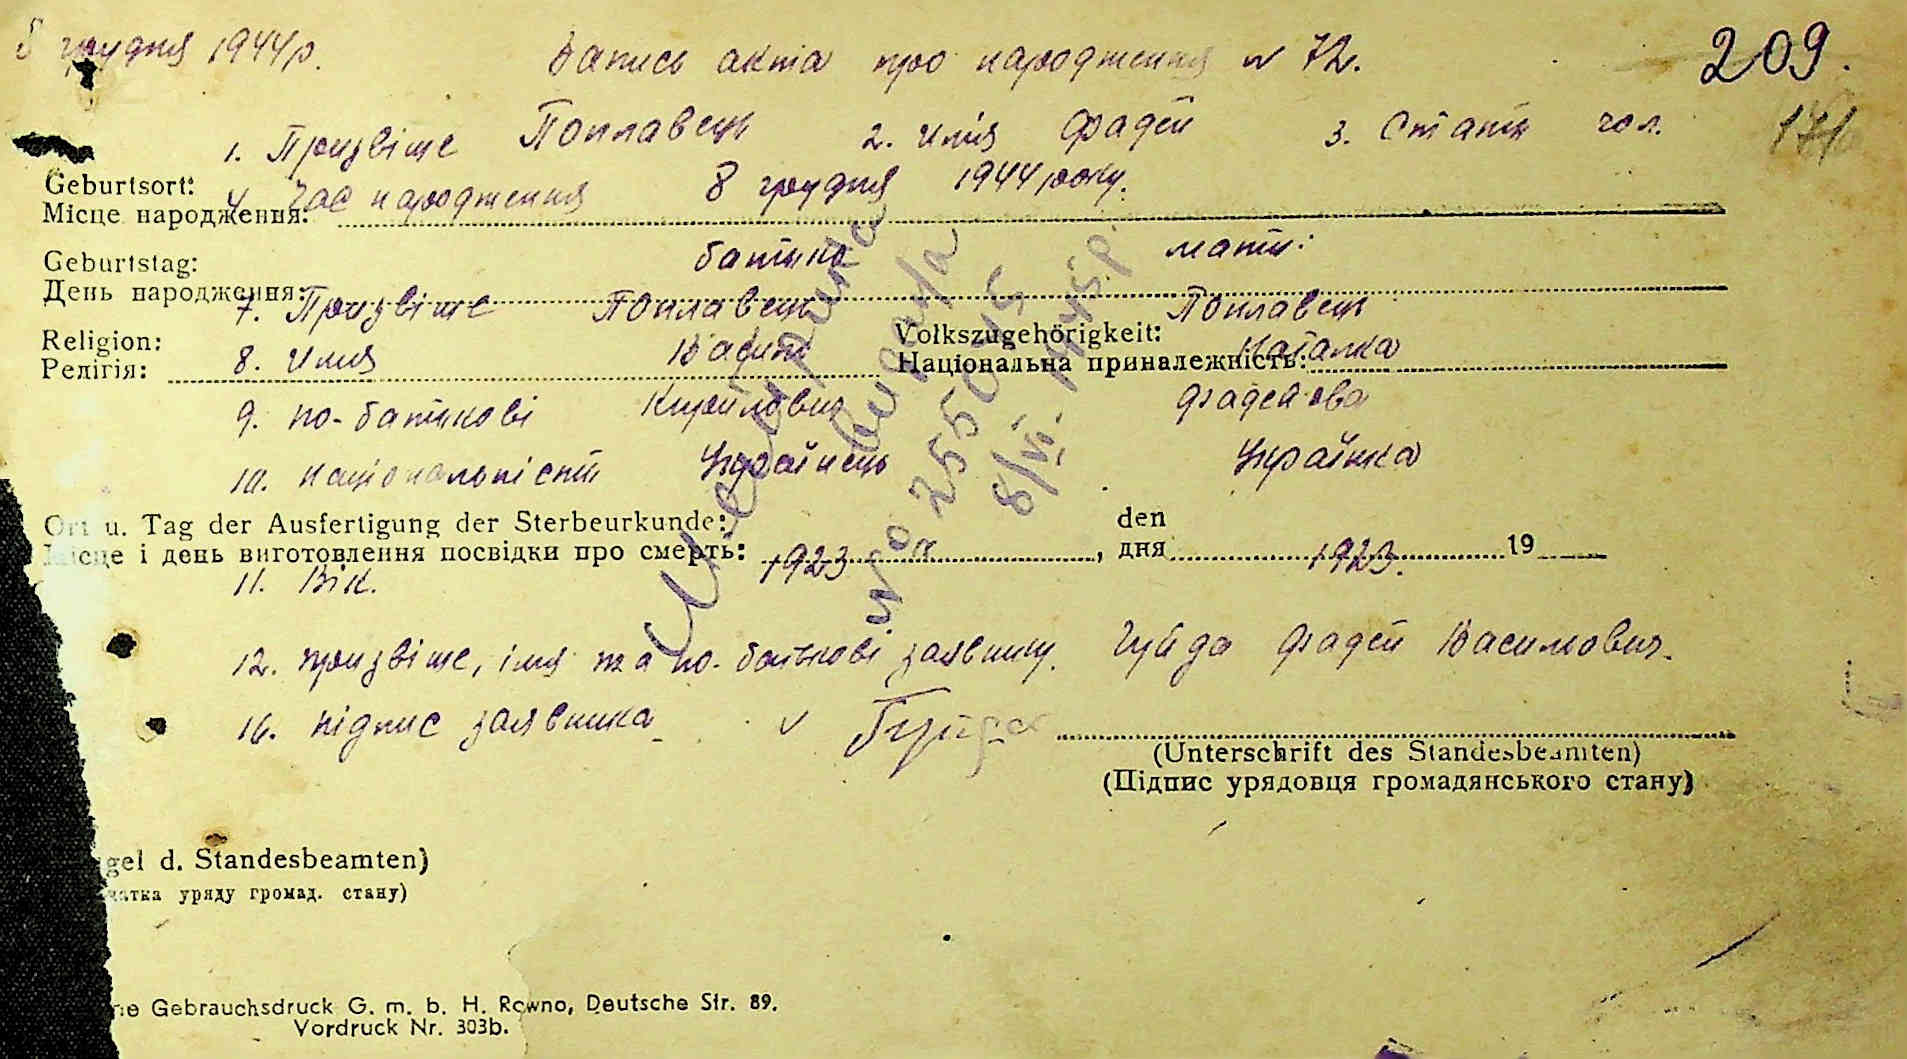 8 грудня 1944 р. Запись акта про народження № 72. 209.
1. Призвіще Поплавець 2. Имя Фадей 3. Стать чол. 171
Geburtsort:
4. Час народження 8 грудня 1944 року.
Місце народження:
батько мати:
Geburtstag:
День народження:
7. Призвіще Поплавець Поплавець
Religion: Volkszugehörigkeit:
8. Имя Наталка
Релігія: Національна приналежність:
9. по-батькові Кирилович Фадейова
10. Національність Українець Українка
Ort u. Tag der Ausfertigung der Sterbeurkunde: den
Місце і день виготовлення посвідки про смерть: , дня 19
11. Вік. 1923 1923.
12. призвіще, імя та по-батькові заявнику. Гуйда Фадей Василович.
16. підпис заявника v Гуйда
(Unterschrift des Standesbeamten)
(Підпис урядовця громадянського стану)
№ 255045
8/VI. 1945 р.
gel d. Standesbeamten)
чатка уряду громад. стану)
ne Gebrauchsdruck G. m. b. H. Rowno, Deutsche Str. 89.
Vordruck Nr. 303b.